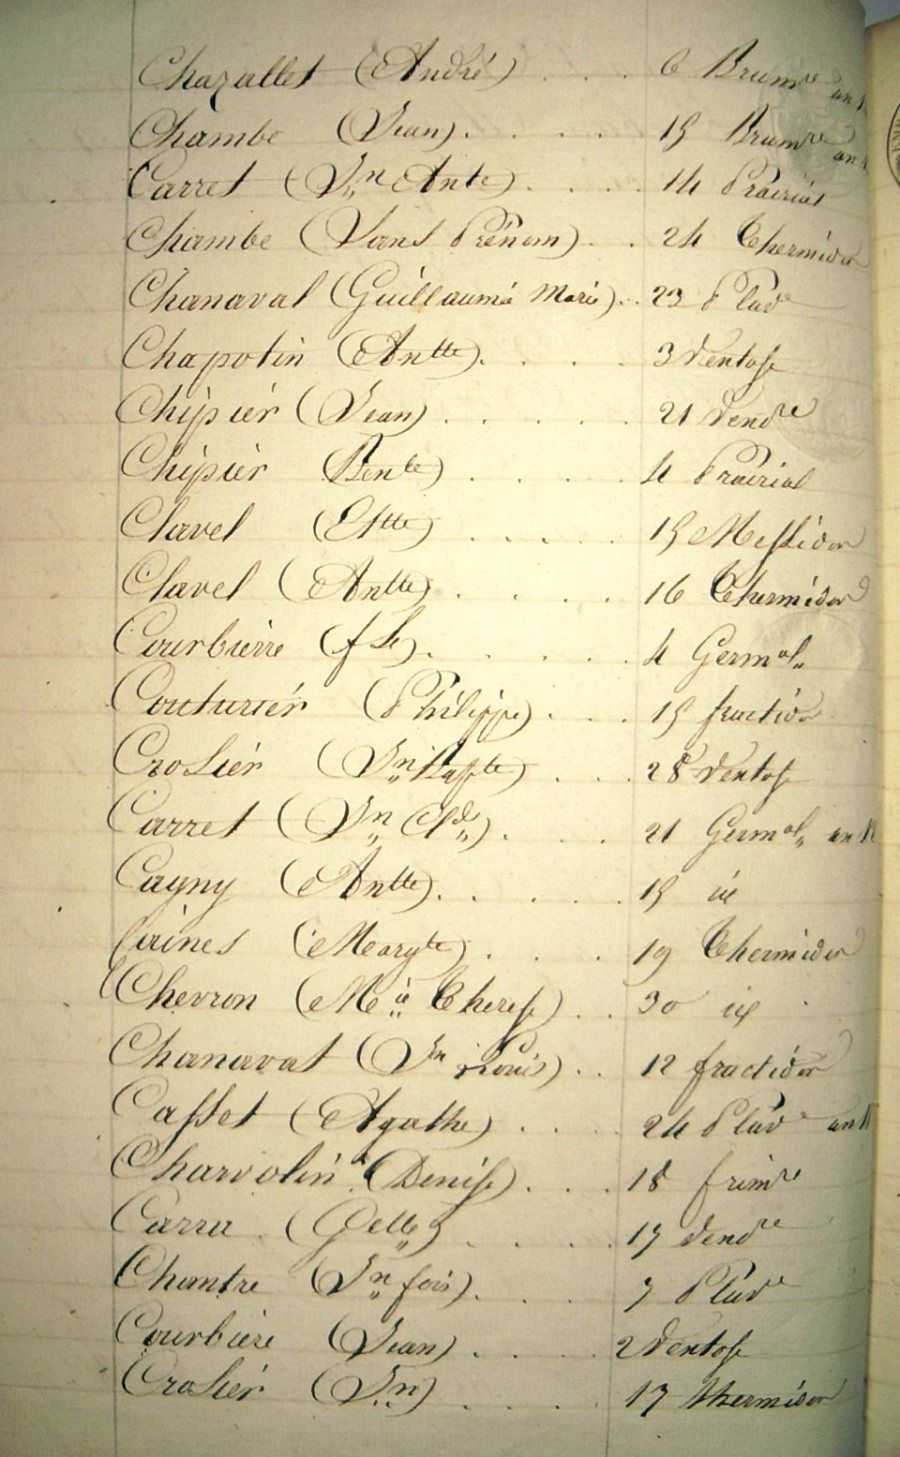 Chazallet (André) . . . 6 Brumre an
Chambe (Jean) . . . . 15 Brumre an
Carret (Jn Ante) . . . . 14 Prairial
Chambe (Sans Prénom) . . 24 Thermidor
Chanaval (Guillaume Marie) . . 23 Pluve
Chapotin (Antte) . . . . 3 Ventose
Chipier (Jean) . . . . . 21 Vendre
Chipier (Bente) . . . . 4 Prairial
Clavel (Ettte) . . . . . 15 Messidor
Clavel (Antte) . . . . 16 Thermidor
Courbierre (fse) . . . . 4 Germal
Couturier (Philippe) . . . 15 fructidor
Crosier (Jn Bapte) . . . 28 Ventose
Carret (Jn Cde) . . . . 21 Germal an
Cagny (Antte) . . . . . 15 id
Caines (Margte) . . . . 19 Thermidor
Chevron (Mie Therese) . . 30 id
Chanavat (Jn Louis) . . 12 fructidor
Casset (Agathe) . . . . 24 Pluve an
Charvolin (Denise) . . . 18 frimre
Carra (Gelle) . . . . 17 Vendre
Chantre (Jn fois) . . . 7 Pluve
Courbiere (Jean) . . . 2 Ventose
Crosier (Jn) . . . . 17 thermidor